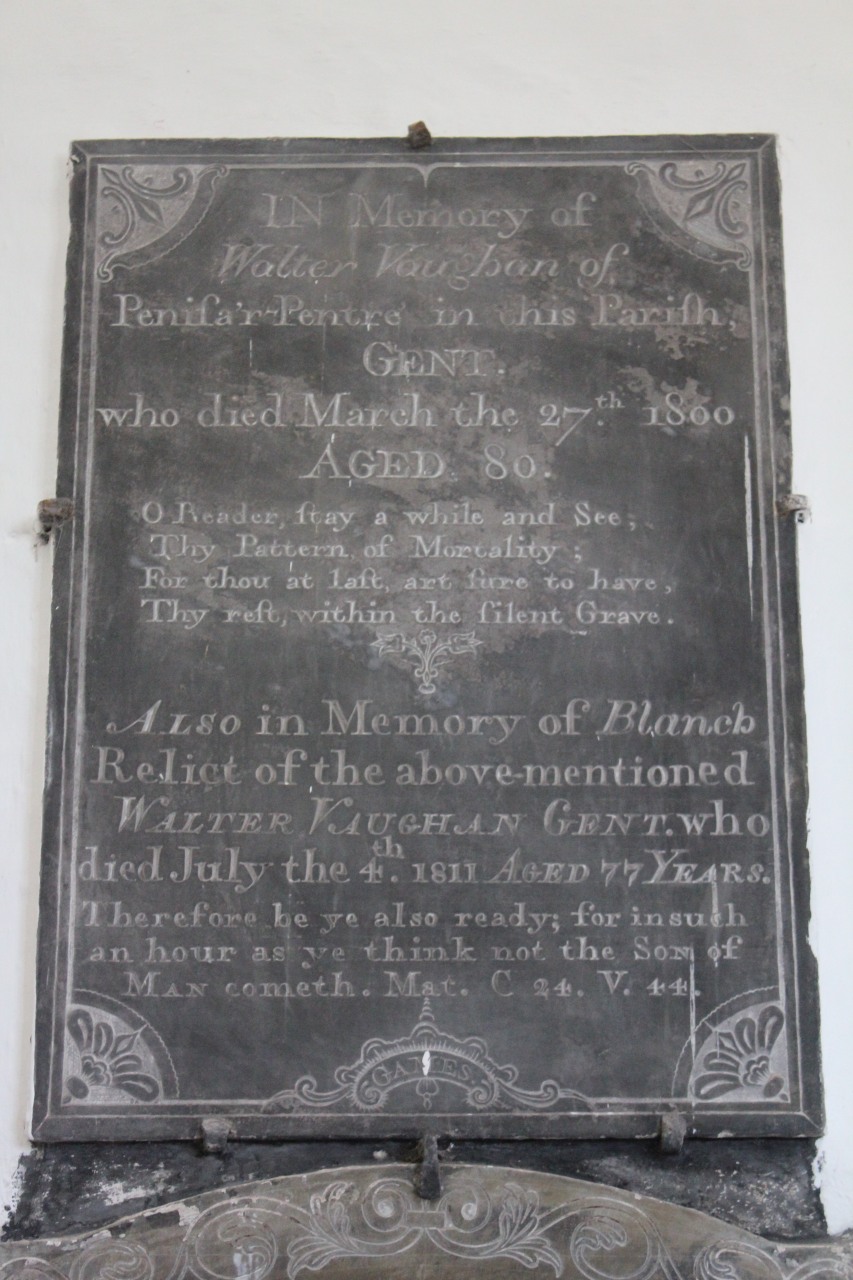 IN Memory of
Walter Vaughan of
Peniſa'r-Pentre in this Pariſh,
GENT.
who died March the 27.th 1800
AGED 80.
O Reader, ſtay a while and See;
Thy Pattern, of Mortality;
For thou at laſt, art ſure to have,
Thy reſt, within the ſilent Grave.
ALSO in Memory of Blanch
Relict of the above-mentioned
WALTER VAUGHAN GENT. who
died July the 4th. 1811 AGED 77 YEARS.
Therefore be ye also ready; for in such
an hour as ye think not the SON of
MAN cometh. Mat. C 24. V. 44.
GAMES